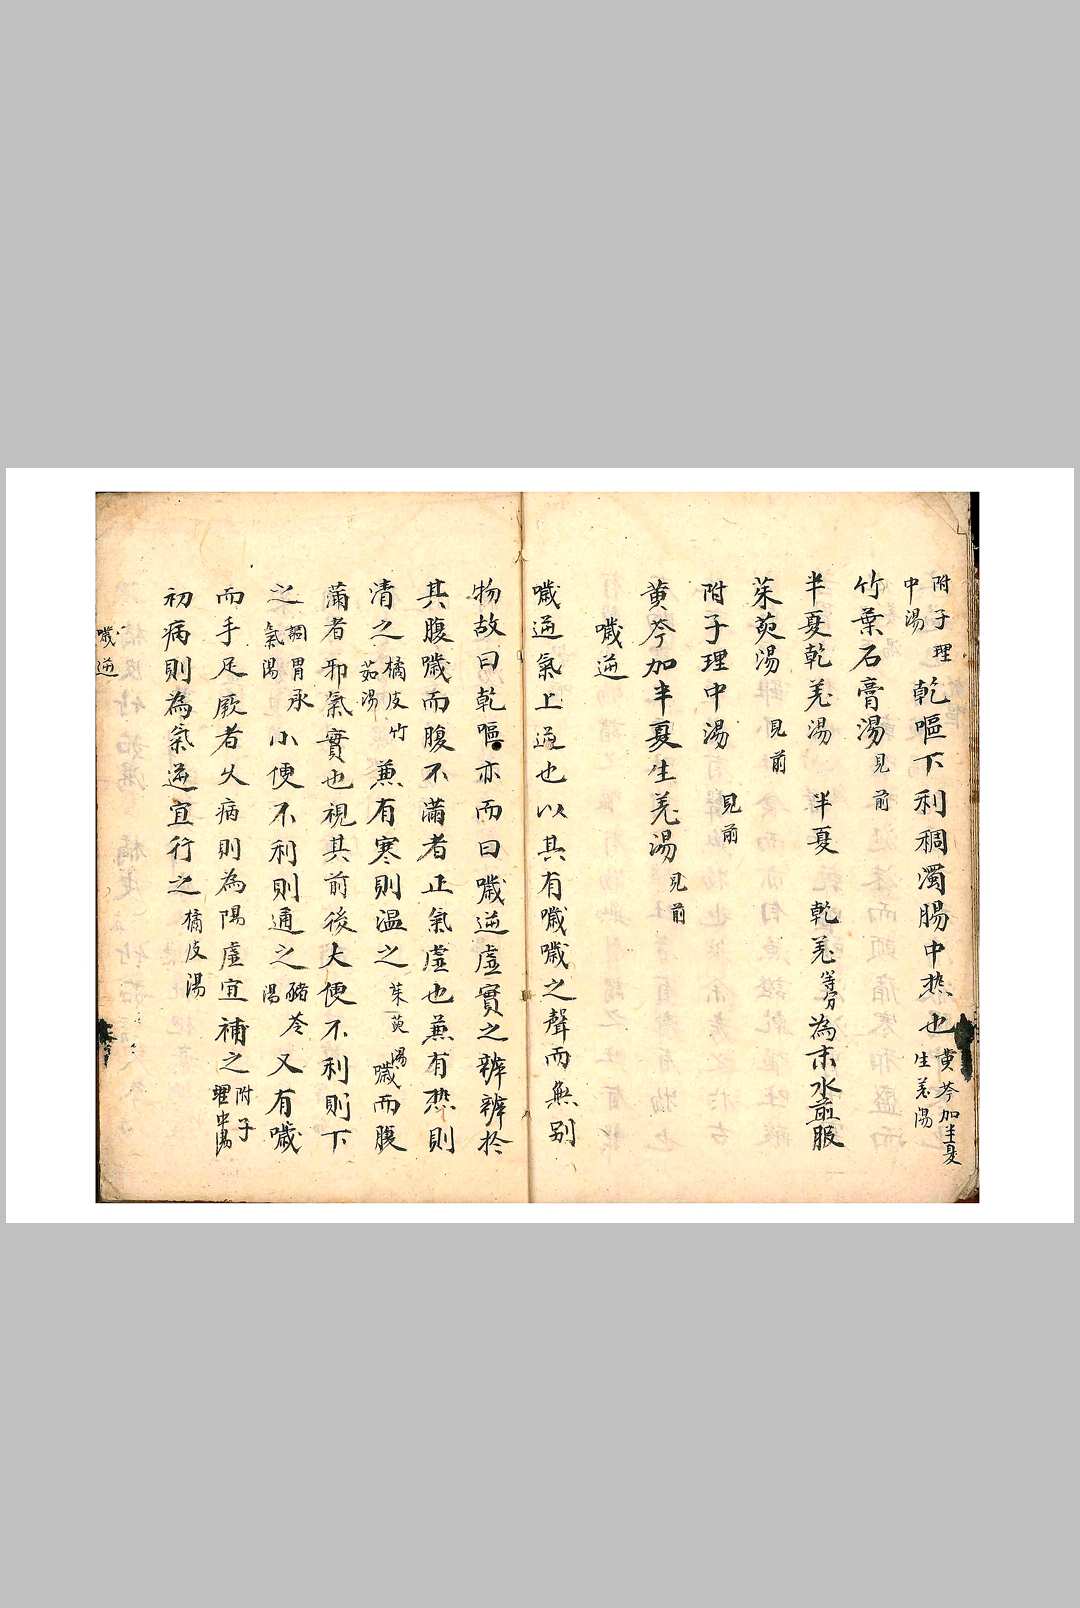 附子理中湯乾嘔下利稠濁腸中热也黄芩加半夏生姜湯
竹葉石膏湯見前
半夏乾姜湯 半夏 乾姜等分為末水煎服
茱萸湯見前
附子理中湯見前
黄芩加半夏生姜湯見前
噦逆
噦逆氣上逆也以其有噦噦之聲而無别
物故曰乾嘔亦而曰噦逆虛實之辨辨於
其腹噦而腹不滿者正氣虛也兼有热則
清之橘皮竹茹湯兼有寒則温之茱萸湯噦而腹
滿者邪氣實也視其前後大便不利則下
之調胃承氣湯小便不利則通之豬苓湯又有噦
而手足厥者久病則為陽虛宜補之附子理中湯
初病則為氣逆宜行之橘皮湯
噦逆